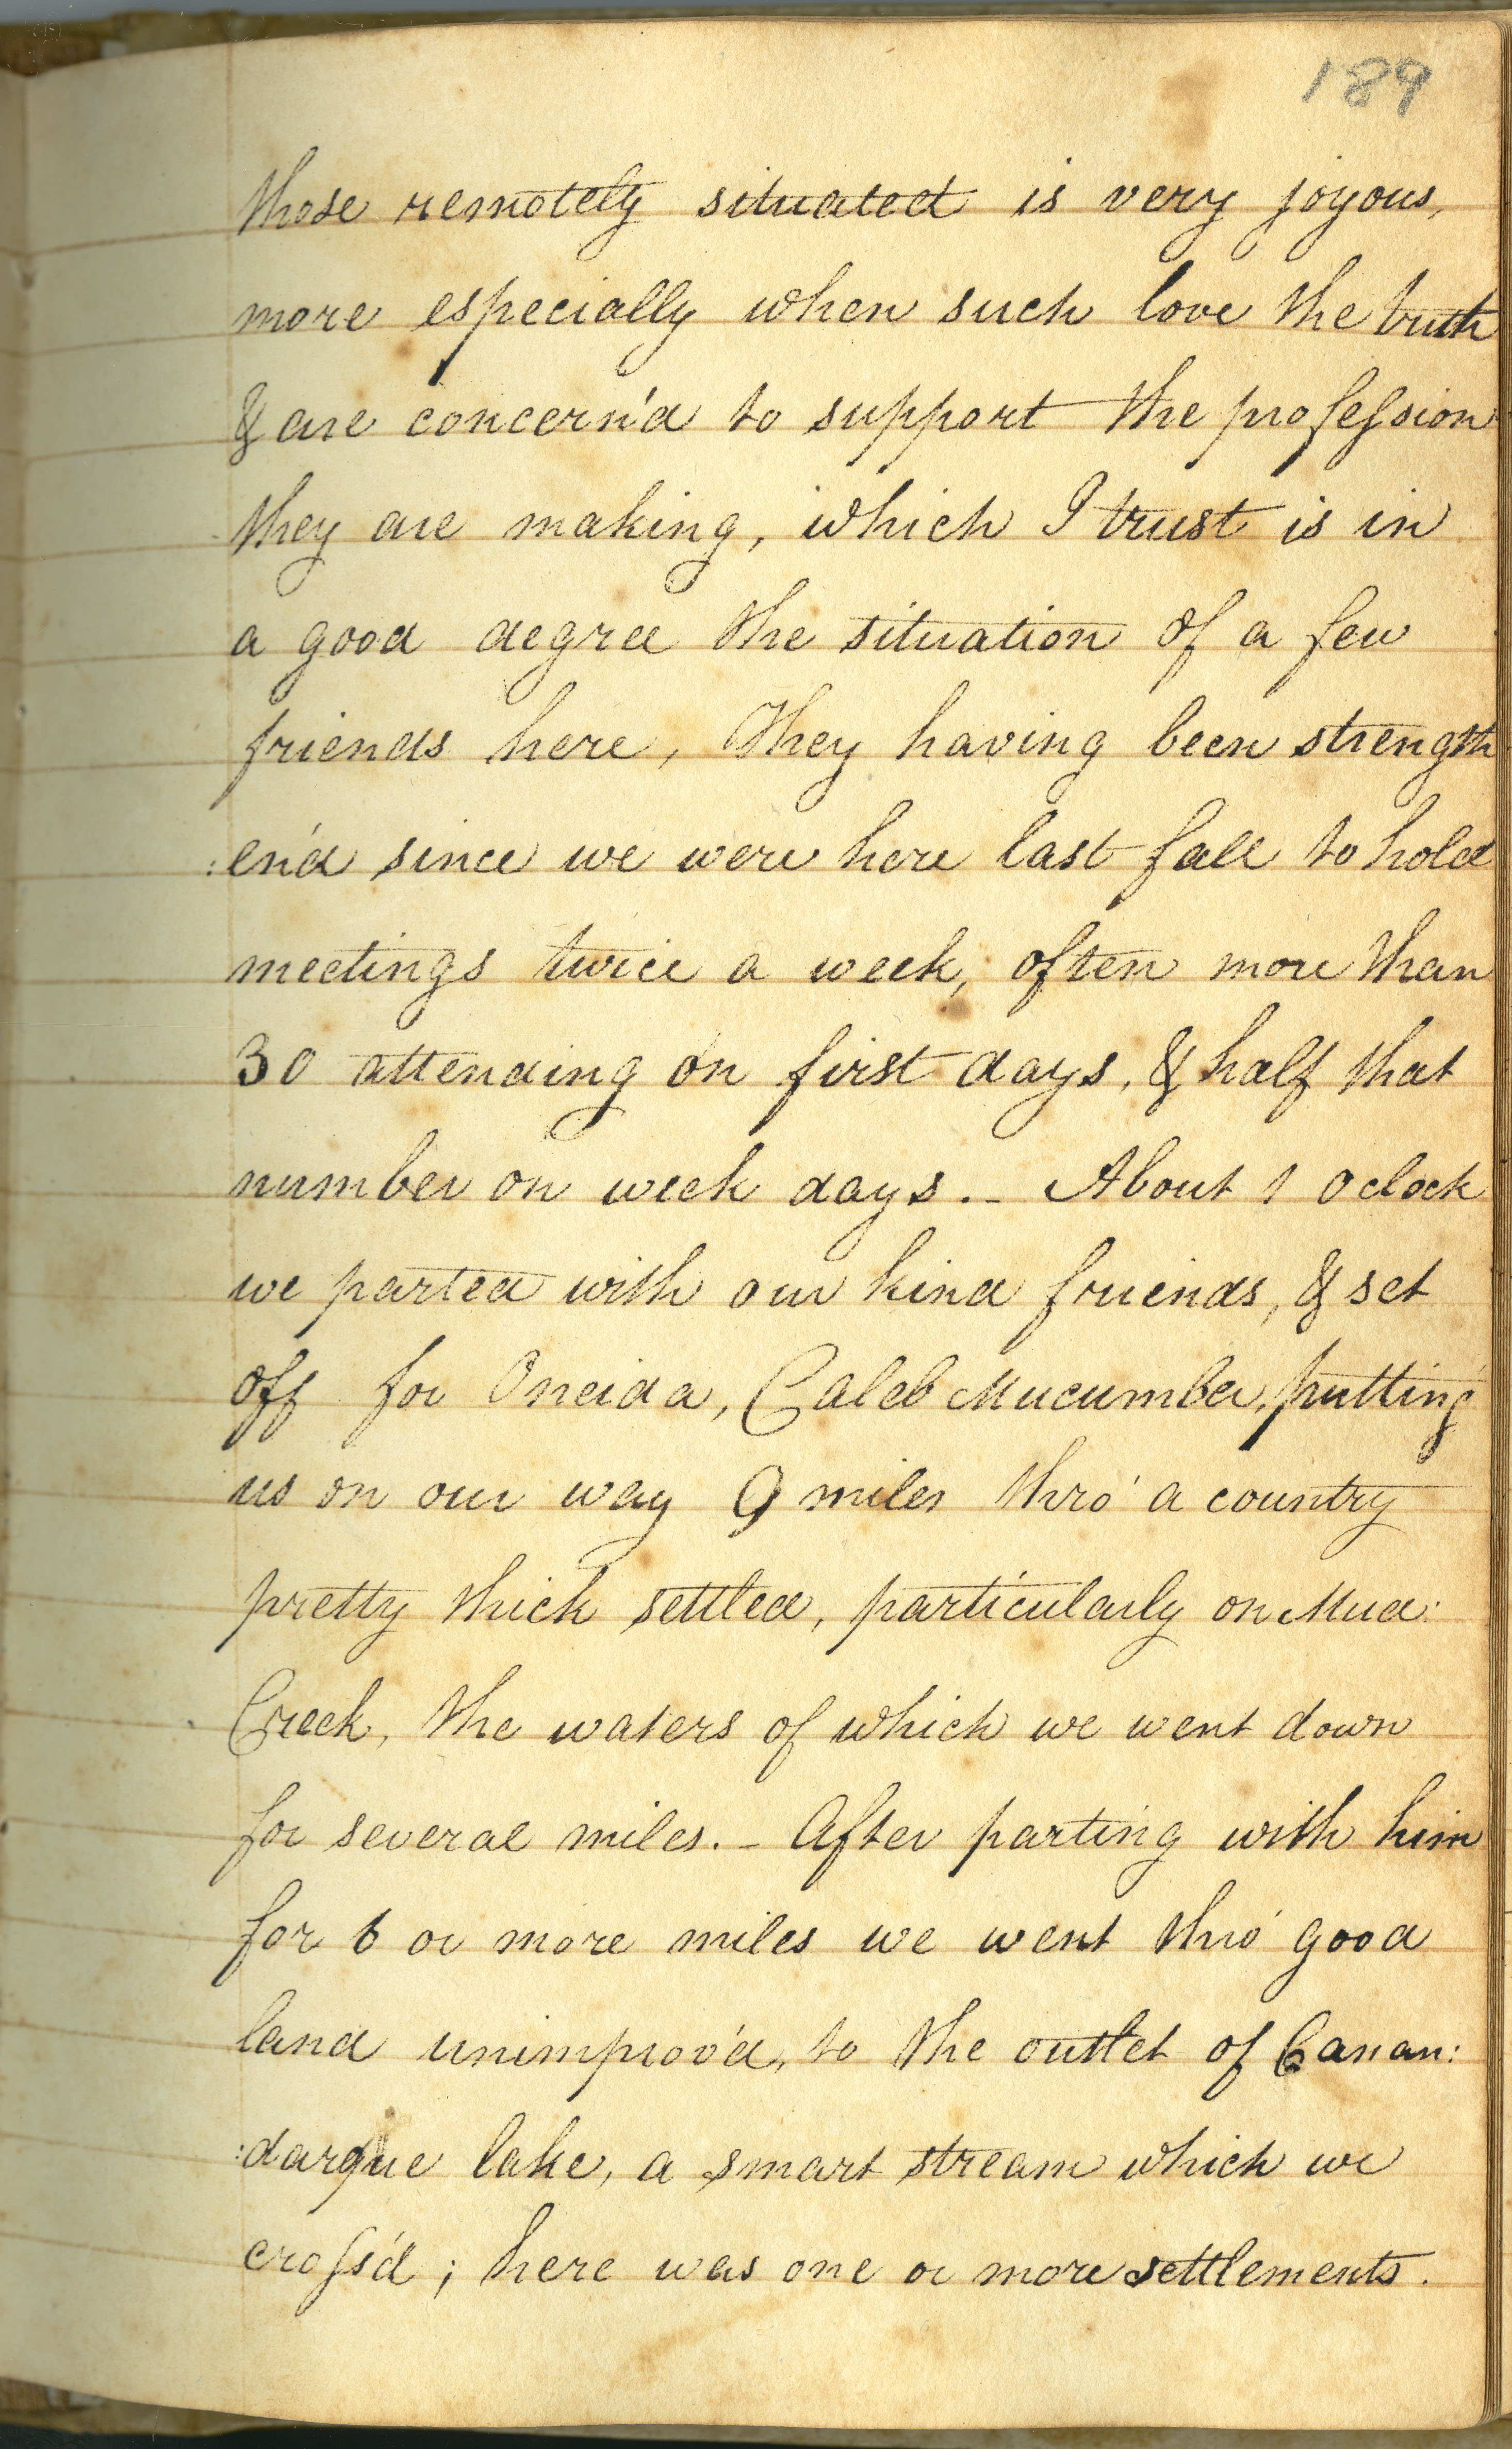 189
those remotely situated is very joyous,
more especially when such love the truth
& are concern'd to support the profession
they are making, which I trust is in
a good degree the situation of a few
friends here, They having been strength
:en'd since we were here last fall to hold
meetings twice a week, often more than
30 attending on first days, & half that
number on week days. - About 1 oclock
we parted with our kind friends, & set
off for Oneida, Caleb Mucumber, putting
us on our way 9 miles thro' a country
pretty thick settled, particularly on Mud:
Creek, the waters of which we went down
for several miles. - After parting with him
for 6 or more miles we went thro' good
land unimprov'd, to the outlet of Canan:
:darque lake, a smart stream which we
cross'd; here was one or more settlements.